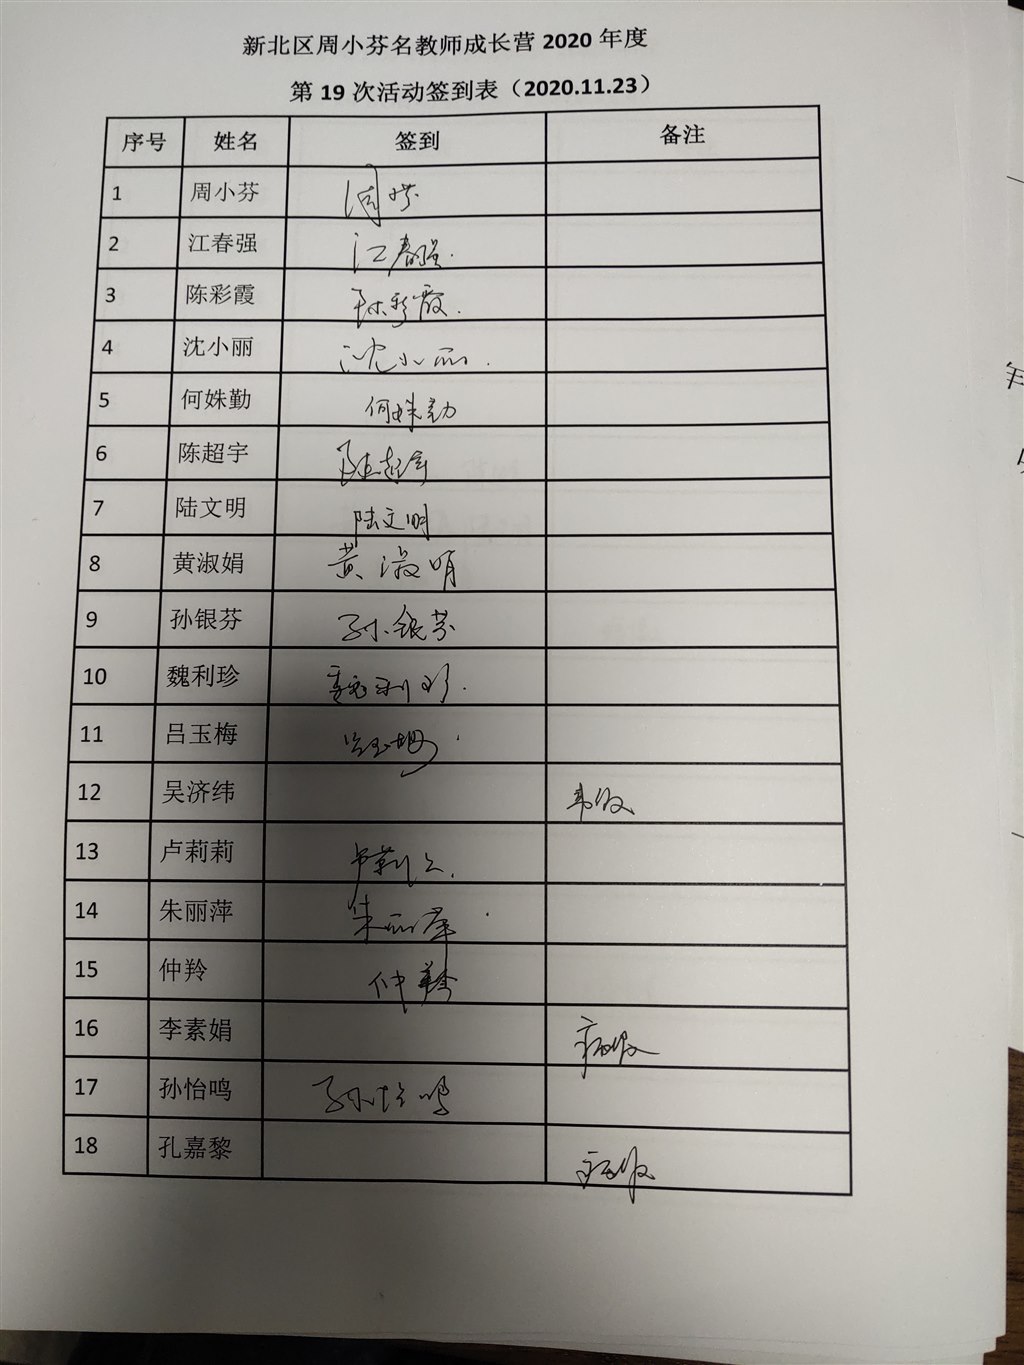 新北区周小芬名教师成长营 2020 年度
第 19 次活动签到表（2020.11.23）
序号 姓名 签到 备注
1 周小芬
2 江春强 江春强.
3 陈彩霞 陈彩霞.
4 沈小丽 沈小丽.
5 何姝勤 何姝勤
6 陈超宇 陈超宇
7 陆文明 陆文明
8 黄淑娟 黄淑娟
9 孙银芬 孙银芬
10 魏利珍 魏利珍.
11 吕玉梅 吕玉梅
12 吴济纬
13 卢莉莉 卢莉莉.
14 朱丽萍 朱丽萍
15 仲羚 仲羚
16 李素娟 病假
17 孙怡鸣 孙怡鸣
18 孔嘉黎 病假